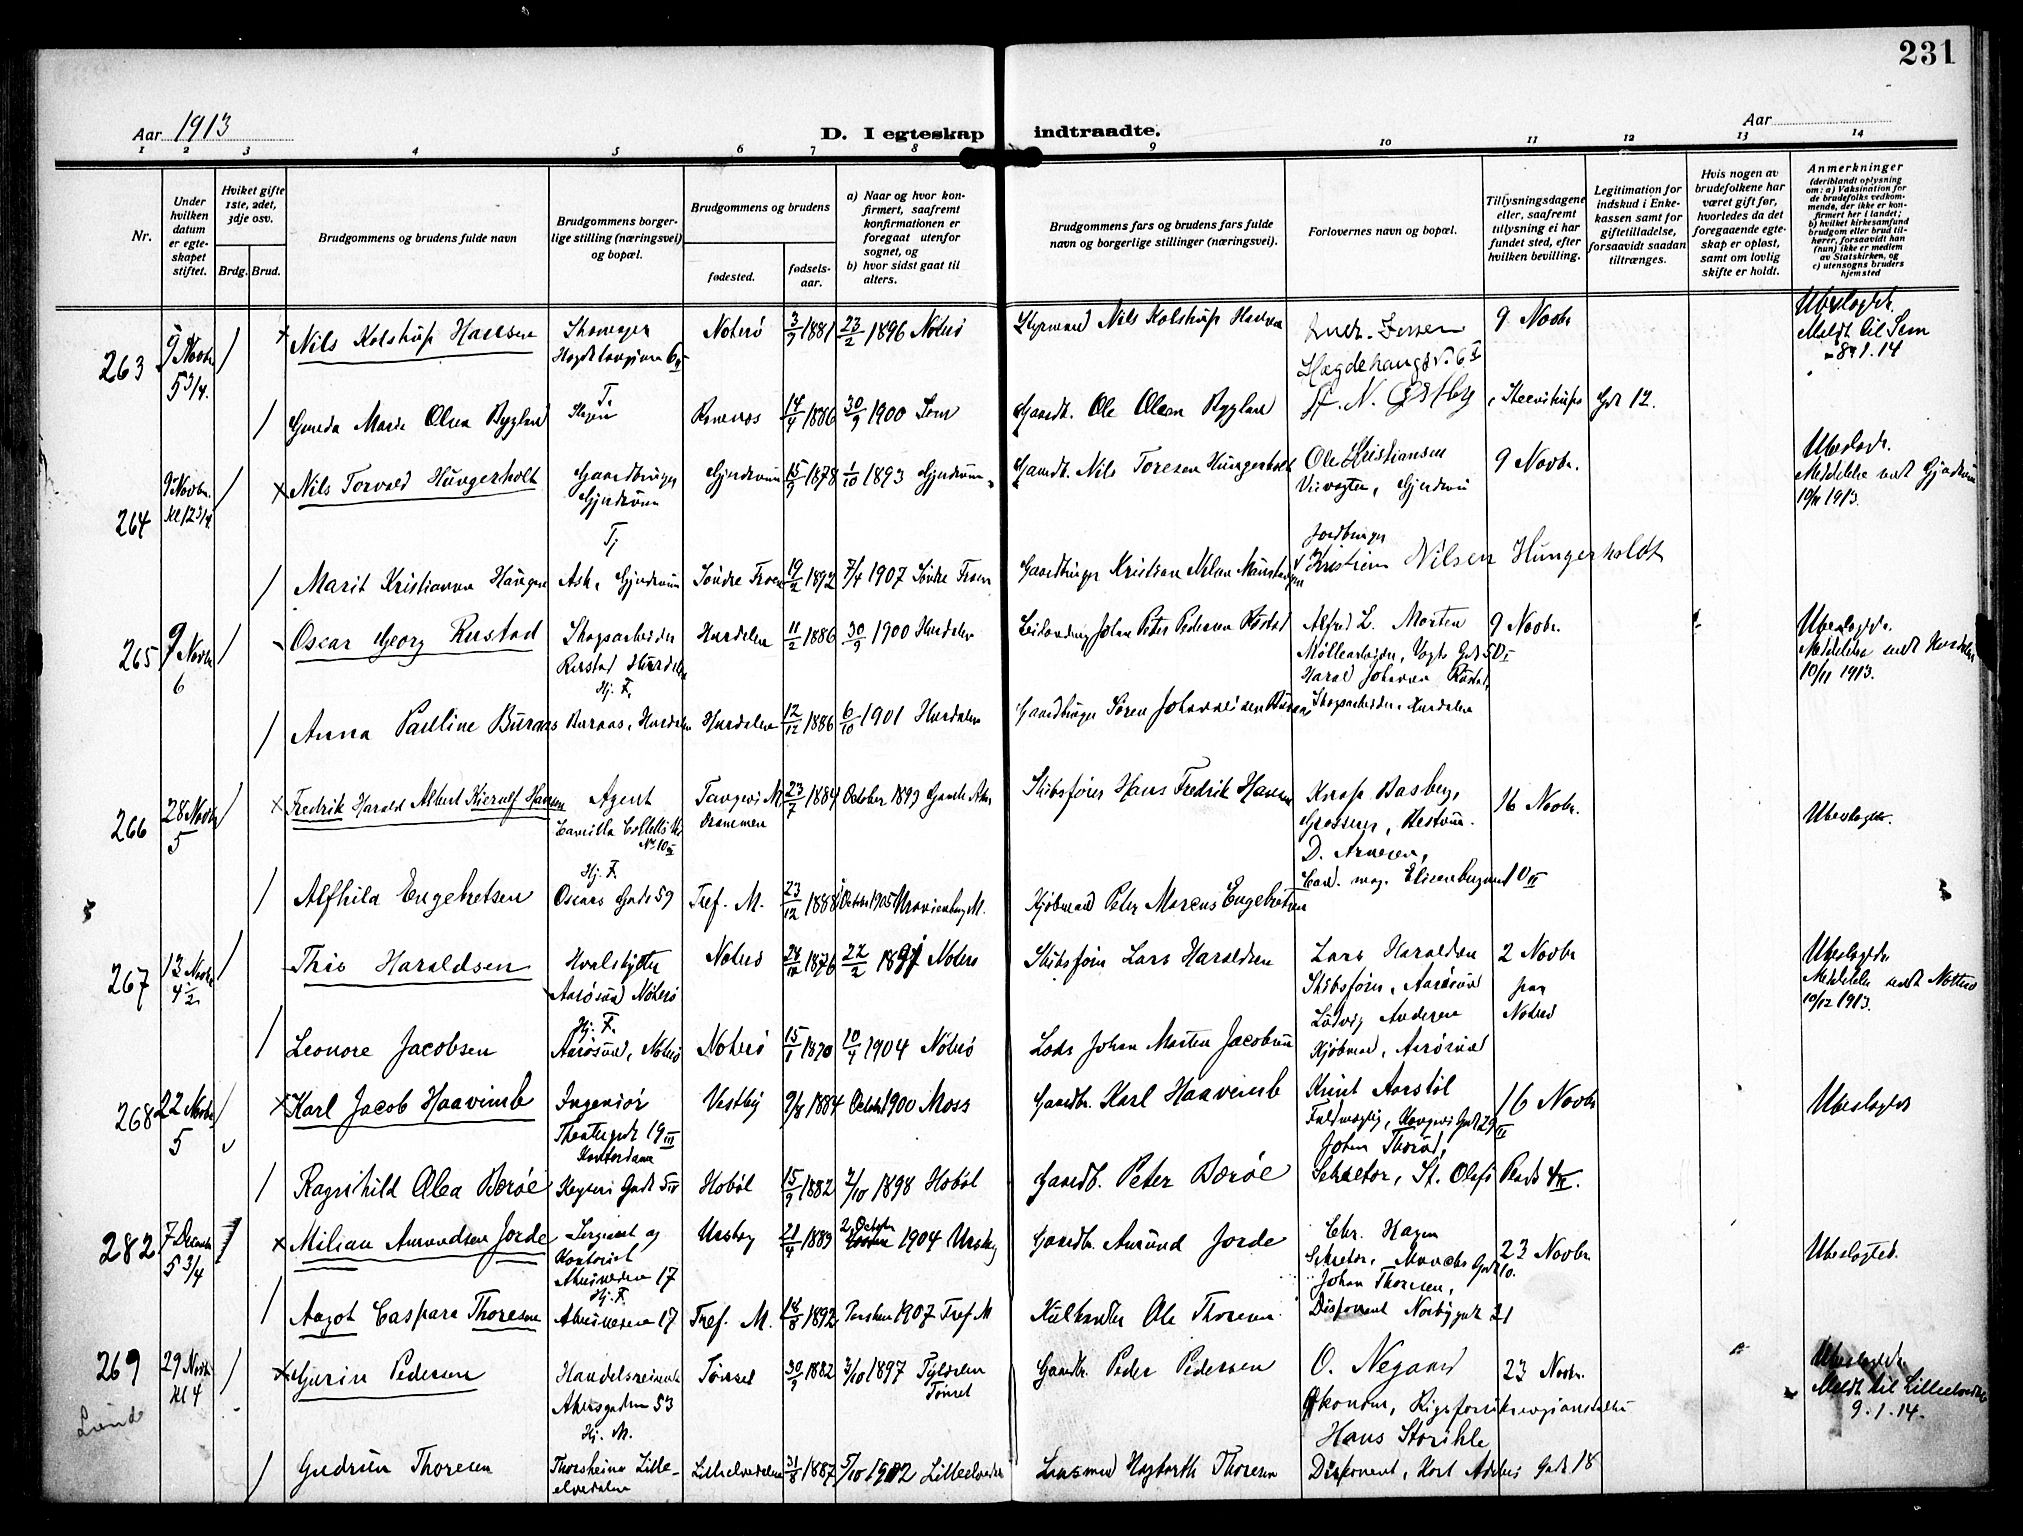 231
Aar 1913
D. I egteskap indtraadte.
Aar
1 2 3 4 5 6 7 8 9 10 11 12 13 14
Nr.
Under hvilken datum er egteskapet stiftet.
Hvilket gifte 1ste, 2det, 3dje osv.
Brdg. Brud.
Brudgommens og brudens fulde navn
Brudgommens borgerlige stilling (næringsvei) og bopæl.
Brudgommens og brudens
fødested.
fødselsaar.
a) Naar og hvor konfirmert, saafremt konfirmationen er foregaat utenfor sognet, og
b) hvor sidst gaat til alters.
Brudgommens fars og brudens fars fulde navn og borgerlige stillinger (næringsvei).
Forlovernes navn og bopæl.
Tillysningsdagene eller, saafremt tillysning ei har fundet sted, efter hvilken bevilling.
Legitimation for indskud i Enkekassen samt for giftetilladelse, forsaavidt saadan tiltrænges.
Hvis nogen av brudefolkene har været gift før, hvorledes da det foregaaende egteskap er opløst, samt om lovlig skifte er holdt.
Anmerkninger
(deriblandt oplysning om: a) Vaksination for de brudefolks vedkommende, der ikke er konfirmert her i landet; b) hvilket kirkesamfund brudgom eller brud tilhører, forsaavidt han (hun) ikke er medlem av Statskirken, og c) utensogns bruders hjemsted
263 9 Novbr. 5 3/4. / × Nils Kolstrup Hansen Nøterø 3/9 1881 23/2 1896 Nøterø Styrmand Nils Kolstrup Hansen 9 Novbr Ubeslagtet. Meldt til Sem 8/1.14
/ Olsen Bygland 14/4 1886 30/9 1900 Sem Gaardb. Ole Olsen Bygland
264 9 Novbr. kl 12 3/4 / × Nils Torvald Hungerholt Gaardbruger Gjerdrum Gjerdrum 15/9 1878 1/10 1893 Gjerdrum Gaardb. Nils Toresen Hungerholt Ole Kristiansen Gjerdrum 9 Novbr. Ubeslagt. Meddelelse sendt Gjerdrum 10/11 1913.
/ Marit Kristiansen Haugen Ask, Gjerdrum Søndre Fron 19/2 1892 7/4 1907 Søndre Fron Gaardbruger Kristian Jordbruger Kristian Nilsen Hungerholdt
265 9 Novbr 6 / Oscar Georg Rustad Skogsarbeider Rustad Hurdalen Hj. F. Hurdalen 11/2 1886 30/9 1900 Hurdalen Johan Peter Pedersen Rustad Alfred L. Morten Møllearbeider, Vogts Gd 50 I Harald Johansen 9 Novbr. Ubeslagtet. Meddelelse sendt Hurdalen 10/11 1913.
/ Anna Pauline Buraas Buraas, Hurdalen Hurdalen 12/12 1886 6/10 1901 Hurdalen Gaardbruger Søren Johannesen Buraas Skogsarbeider, Hurdalen
266 28 Novbr 5 / × Fredrik Harald Albert Kierulf Hansen Agent Camilla Colletts V. No. 10 III Tangen M. Drammen 23/7 1884 October 1893 Gamle Aker Skibsfører Hans Fredrik Hansen Basberg, Grosserer, D. Arnesen, Cand. mag. 16 Novbr. Ubeslagtet.
/ Alfhild Engebretsen Hj. F. Oscars Gade 59 Tref. M. 23/12 1888 October 1905 Uranienborg M. Kjøbmand Peter Marcus Engebretsen
267 12 Novbr 4 1/2 / Thio Haraldsen Hvalskytter Aarøsund Nøterø Nøterø 1876 22/2 1891 Nøterø Skibsfører Lars Haraldsen Lars Haraldsen Skibsfører, Aarøsund 2 Novbr fra Nøterø Ubeslagtet Meddelelse sendt Nøtterø 10/12 1913.
/ Leonore Jacobsen Hj. F. Aarøsund, Nøterø Nøterø 15/1 1890 10/4 1904 Nøterø Lods Johan Morten Jacobsen Ludvig Andersen Kjøbmand, Aarøsund
268 22 Novbr 5 / × Karl Jacob Haavimb Ingeniør Theatergt 19 III Vestby 9/8 1884 Octbr 1900 Moss Gaardbr. Karl Haavimb Knut Aarstøl 16 Novbr Ubeslagtet
/ Ragnhild Alea Børøe Keysers Gade 5 IV Hobøl 15/9 1882 2/10 1898 Hobøl Gaardb. Peter Børøe Johan Thorud, Sekretær, St. Olafs Plads 4 II.
282 7 Decembr 5 3/4 / × Milian Amundsen Jorde Sergeant og Kontorist Akersveien 17 Urskog 21/4 1889 2 October 1904 Urskog Gaardbr. Amund Jorde Chr. Hagen Sekretær, Munchs Gade 10. 23 Novbr. Ubeslagtet.
/ Aagot Caspara Thoresen Hj. F. Akersveien 17 Tref. M. 18/8 1892 1907 Tref M Kulhandler Ole Thoresen Johan Thoresen, Disponent Norbygade 21
269 29 Novbr kl 4 / × Gurin Pedersen Handelsreisende Akersgaden 53 Hj. M. Tønset 30/9 1882 3/10 1897 Tyldalen Tønset Gaardbr. Peder Pedersen O. Negaard Økonom, 23 Novbr. Ubeslagtet Meldt til Lilleelvedalen 9.1.14.
Lund
/ Gudrun Thoresen Thorsheim Lilleelvedalen Lilleelvedalen 31/8 1887 5/10 1902 Lilleelvedalen Lensmand Thoresen Hans Storihle Disponent, Kort Adelers Gade 18